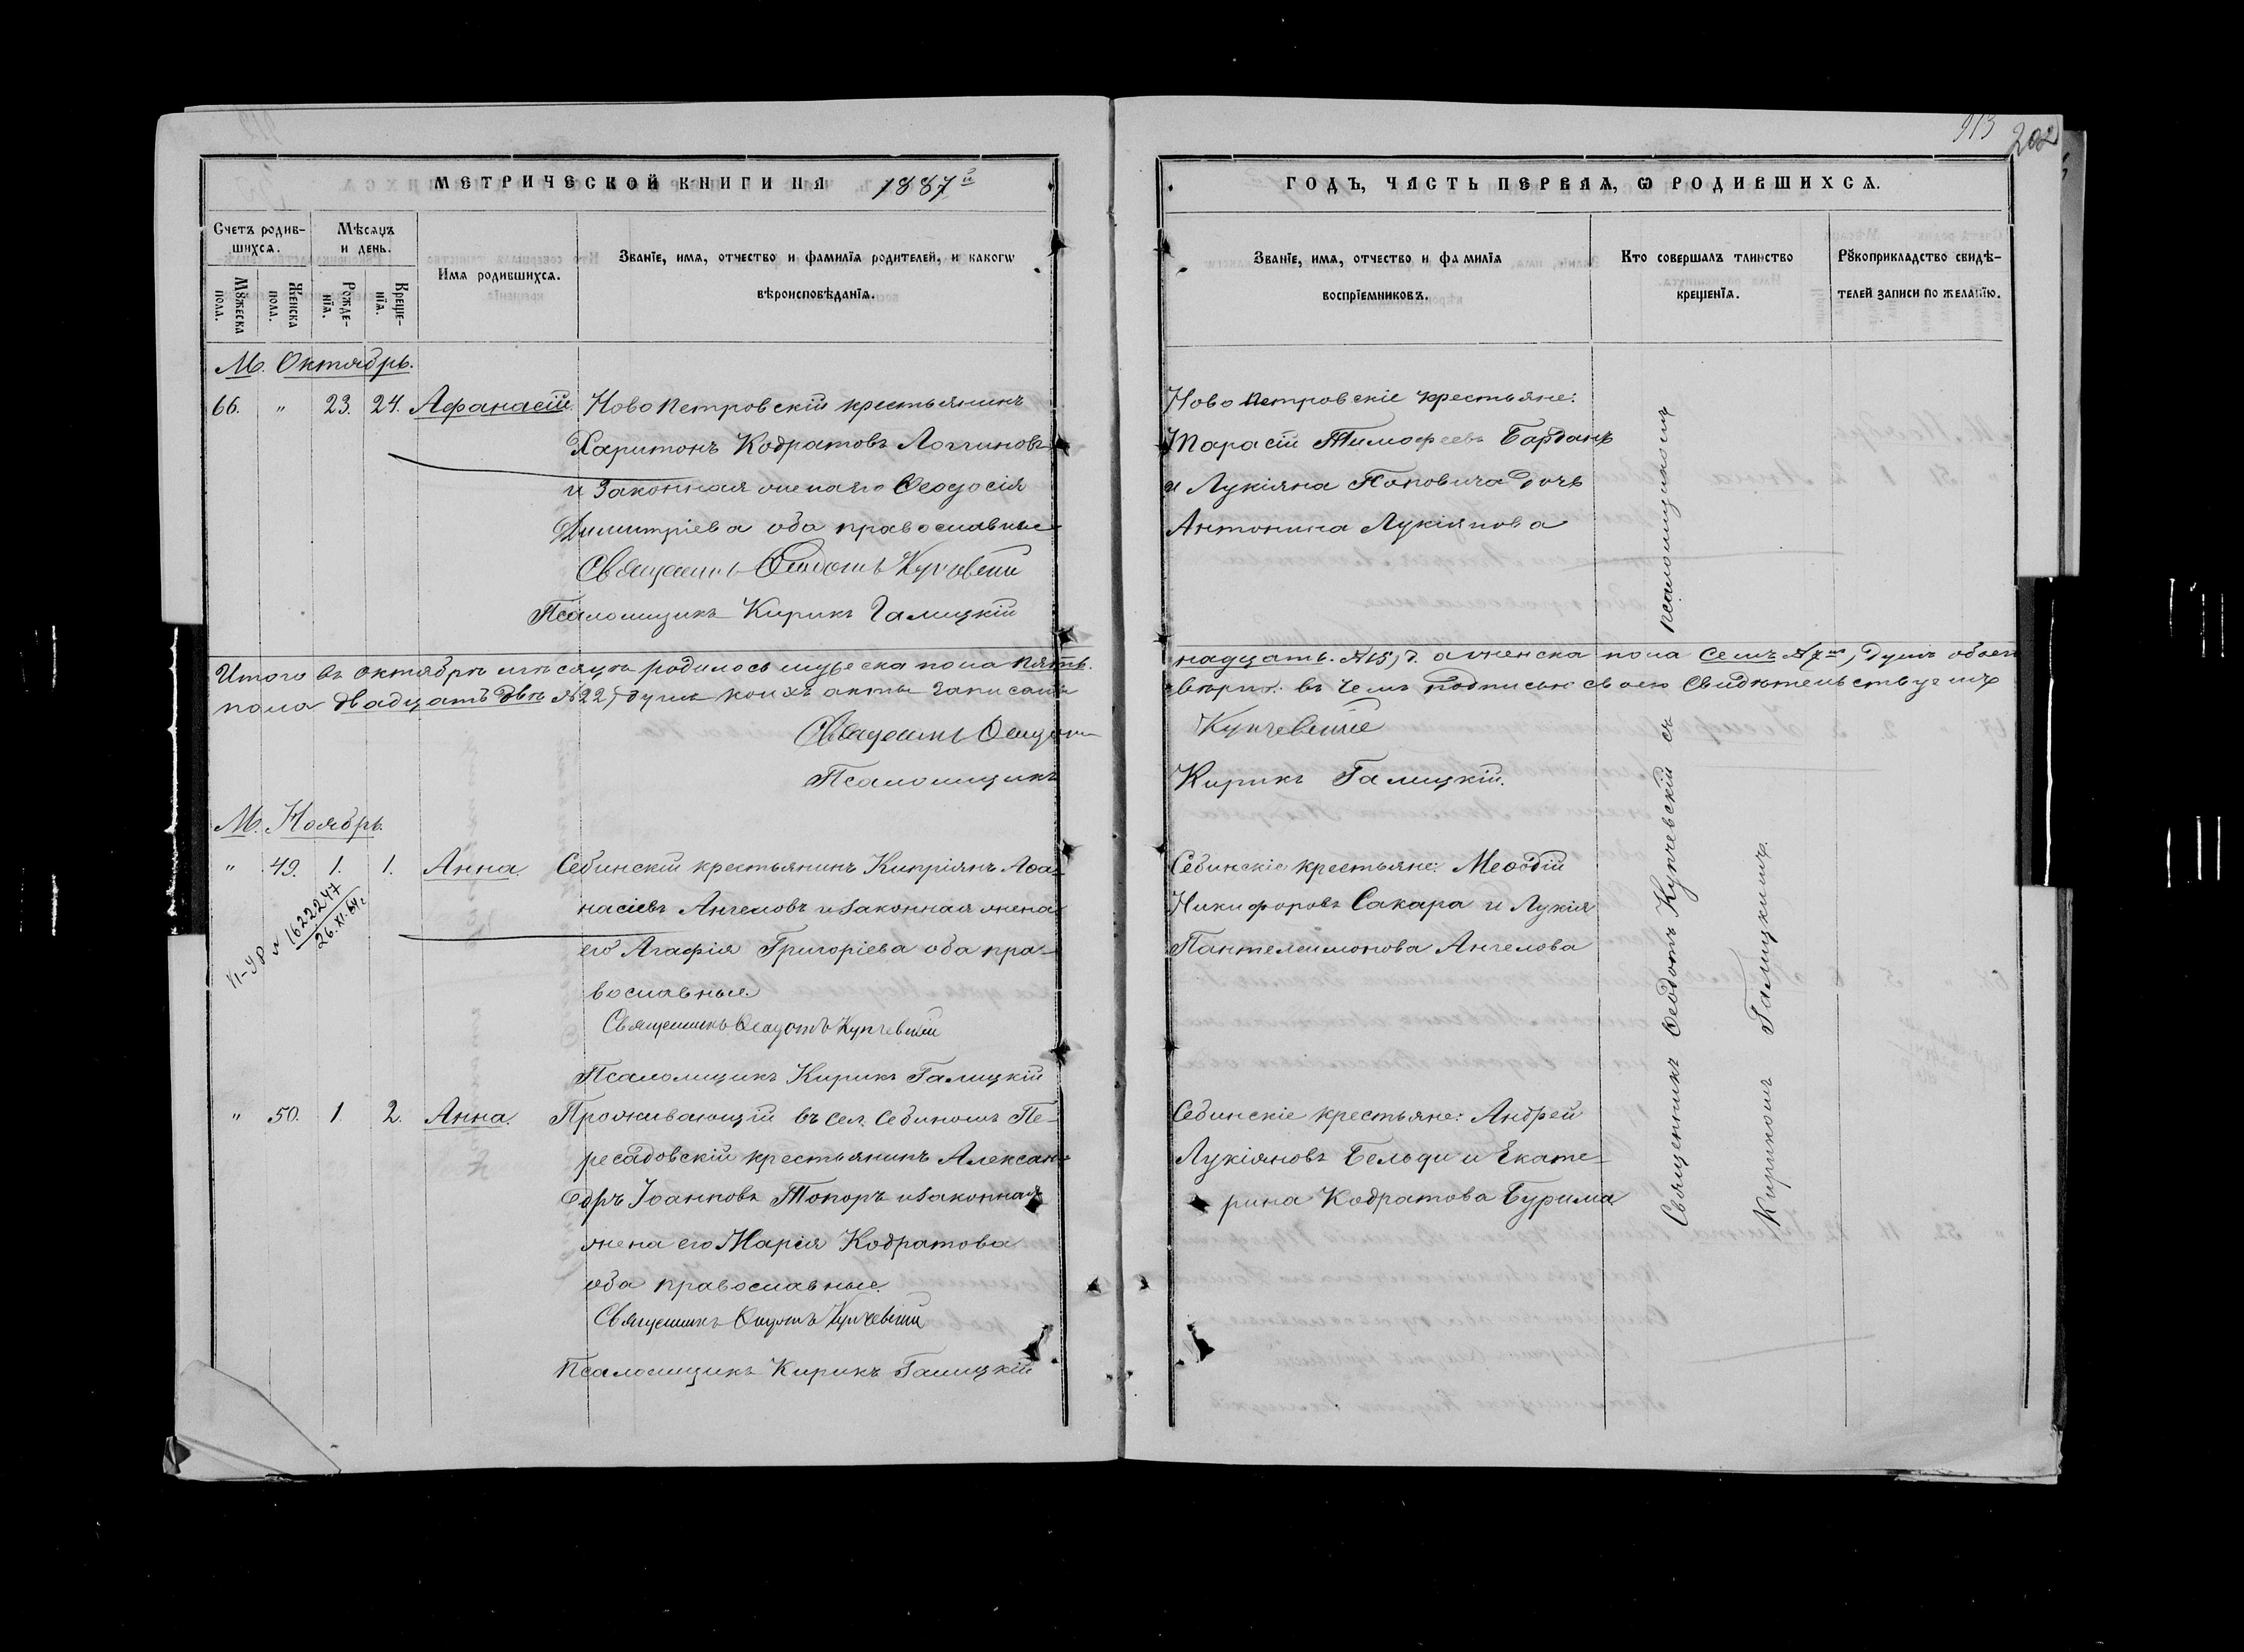 913 202
МЕТРИЧЕСКОЙ КНИГИ НА 1887й
ГОДЪ, ЧАСТЬ ПЕРВАѦ, Ѡ РОДИВШИХСѦ.
Счетъ родив-
шихсѧ.
Мꙋжеска
пола.
Женска
пола.
Мѣсѧцъ
и день.
Рожде-
нїѧ.
Креще-
нїѧ.
Имѧ родившихсѧ.
Званїе, имѧ, отчество и фамилїѧ родителей, и какогѡ
вѣроисповѣданїѧ.
Званїе, имѧ, отчество и фамилїѧ
воспрїемниковъ.
Кто совершалъ таинство
крещенїѧ.
Рꙋкоприкладство свидѣ-
телей записи по желанїю.
М. Октябрь.
66. " 23. 24. Афанасій. Новопетровскій крестьянинъ
Харитонъ Кодратовъ Логгиновъ
и законная жена его Ѳеодосія
Димитріева оба православные
Священникъ Ѳеодотъ Купчевскій
Псаломщикъ Кирикъ Галицкій
Новопетровскіе крестьяне:
Тарасій Тимофеевъ Барданъ
и Лукіяна Поповича дочь
Антонина Лукіянова
Итого въ октябрѣ мѣсяцѣ родилось мужеска пола пять-
надцать. №15) д. а женска пола семь №7м) душъ обоего
пола двадцать двѣ №22) души коихъ акты записаны
вѣрно. въ чемъ подписью своею свидѣтельствуемъ
Священникъ Ѳеодотъ Купчевскій
Псаломщикъ Кирикъ Галицкій.
М. Ноябрь.
" 49. 1. 1. Анна. Себинскій крестьянинъ Кипріянъ Аѳа-
насіевъ Ангеловъ и законная жена
его Агафія Григоріева оба пра-
вославные
Священникъ Ѳеодотъ Купчевскій
Псаломщикъ Кирикъ Галицкій
1622247
26.XI.64г
Себинскіе крестьяне: Меѳодій
Никифоровъ Сакара и Лукія
Пантелеимонова Ангелова
" 50. 1. 2. Анна. Проживающій въ сел. Себиномъ Пе-
ресадовскій крестьянинъ Алексан-
дръ Іоанновъ Топоръ и законная
жена его Марія Кодратова
оба православные.
Священникъ Ѳеодотъ Купчевскій
Псаломщикъ Кирикъ Галицкій
Себинскіе крестьяне: Андрей
Лукіяновъ Бельди и Екате-
рина Кодратова Бурима
Священникъ Ѳеодотъ Купчевскій съ псаломщикомъ
Кирикомъ Галицкимъ.